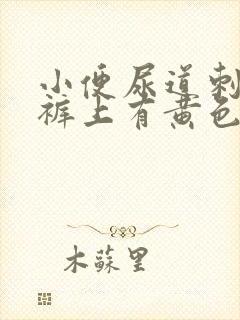 小便尿道刺
裤上有黄色
木蘇里